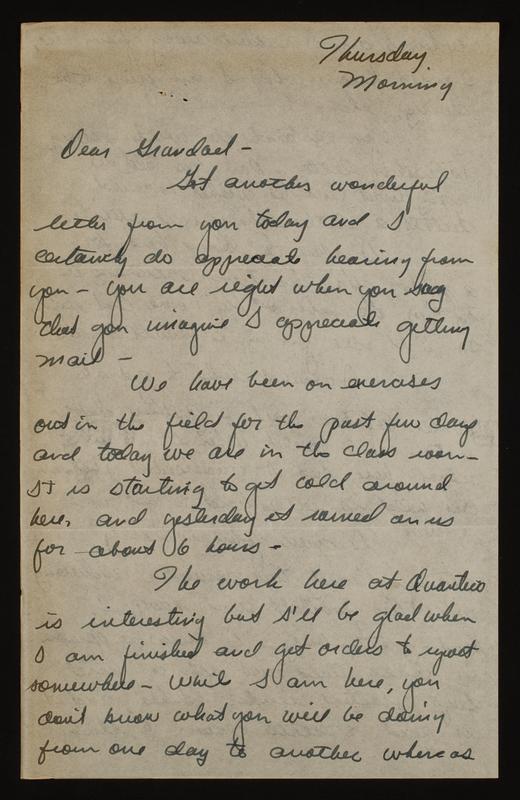 Thursday
Morning
Dear Grandad -
Got another wonderful
letter from you today and I
certainly do appreciate hearing from
you - you are right when you say
that you imagine I appreciate getting
mail -
We have been on exercises
out in the field for the past few days
and today we are in the class room -
It is starting to get cold around
here, and yesterday it rained on us
for about 6 hours -
The work here at Quantico
is interesting but I'll be glad when
I am finished and get orders to report
somewhere - While I am here, you
don't know what you will be doing
from one day to another whereas